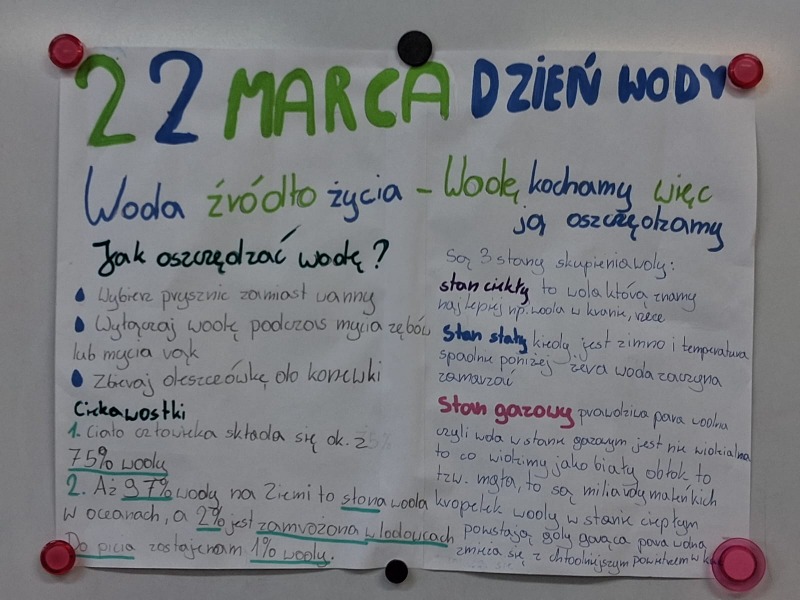 22 MARCA DZIEŃ WODY
Woda źródło życia – Wodę kochamy więc
ją oszczędzamy
Jak oszczędzać wodę?
Wybierz prysznic zamiast wanny
Wyłączaj wodę podczas mycia zębów
lub mycia rąk
Zbieraj deszczówkę do konewki
Ciekawostki
1. Ciało człowieka składa się ok. z
75% wody
2. Aż 97% wody na Ziemi to słona woda
w oceanach, a 2% jest zamrożona w lodowcach
Do picia zostaje nam 1% wody.
Są 3 stany skupienia wody:
stan ciekły to woda którą znamy
najlepiej np. woda w kranie, rzece
Stan stały kiedy jest zimno i temperatura
spadnie poniżej zera woda zaczyna
zamarzać
Stan gazowy prawdziwa para wodna
czyli woda w stanie gazowym jest nie widzialna
to co widzimy jako biały obłok to
tzw. mgła, to są miliardy maleńkich
kropelek wody w stanie ciepłym
powstają gdy gorąca para wodna
zmiesza się z chłodniejszym powietrzem w